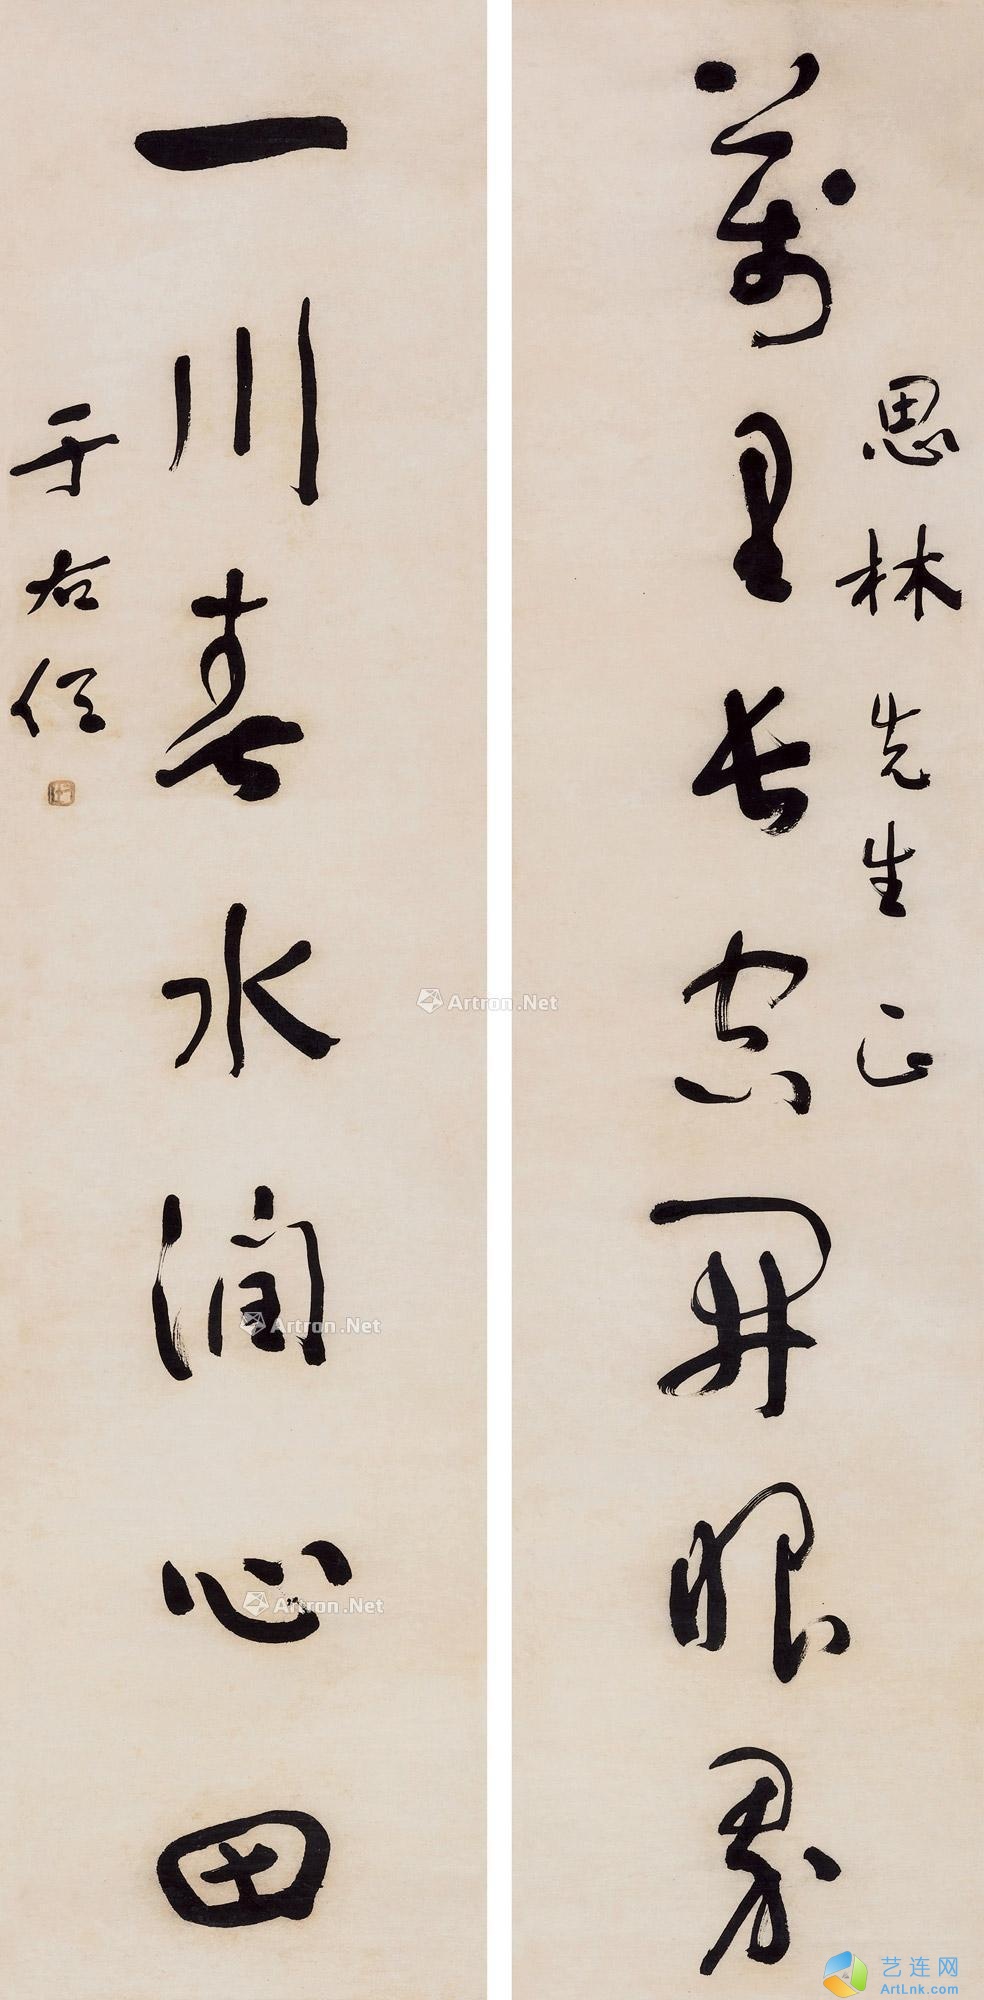 思林先生正
萬里長空開眼界
一川春水潤心田
于右任
Artron.Net
Artron.Net
Artron.Net
艺连网
ArtLnk.com